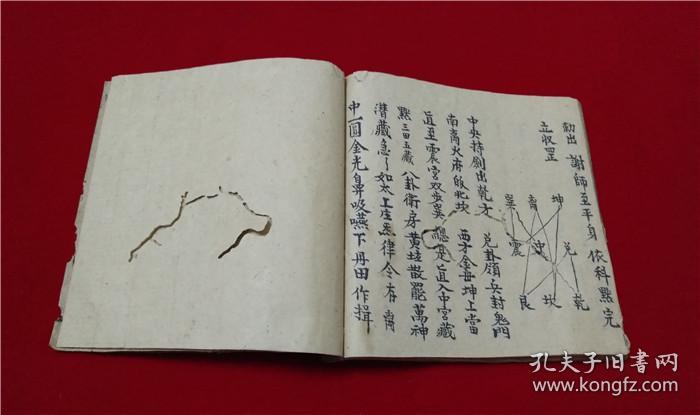 謝師至平身 依科點完
勅出
立收罡
坤 离 巽
兑 中 震
乾 坎 艮
中央持劍出乾方 兑卦領兵封鬼門
南离火府皈北坎 西方金母坤上當
直至震宮双步巽 總是直入中宮藏
點三四五藏 八卦衛房黄𡊨散罷萬神
潛藏急〻如太上 律令 有
中一圓金光鼻吸嚥下丹田作揖
孔夫子旧书网
www.kongfz.com